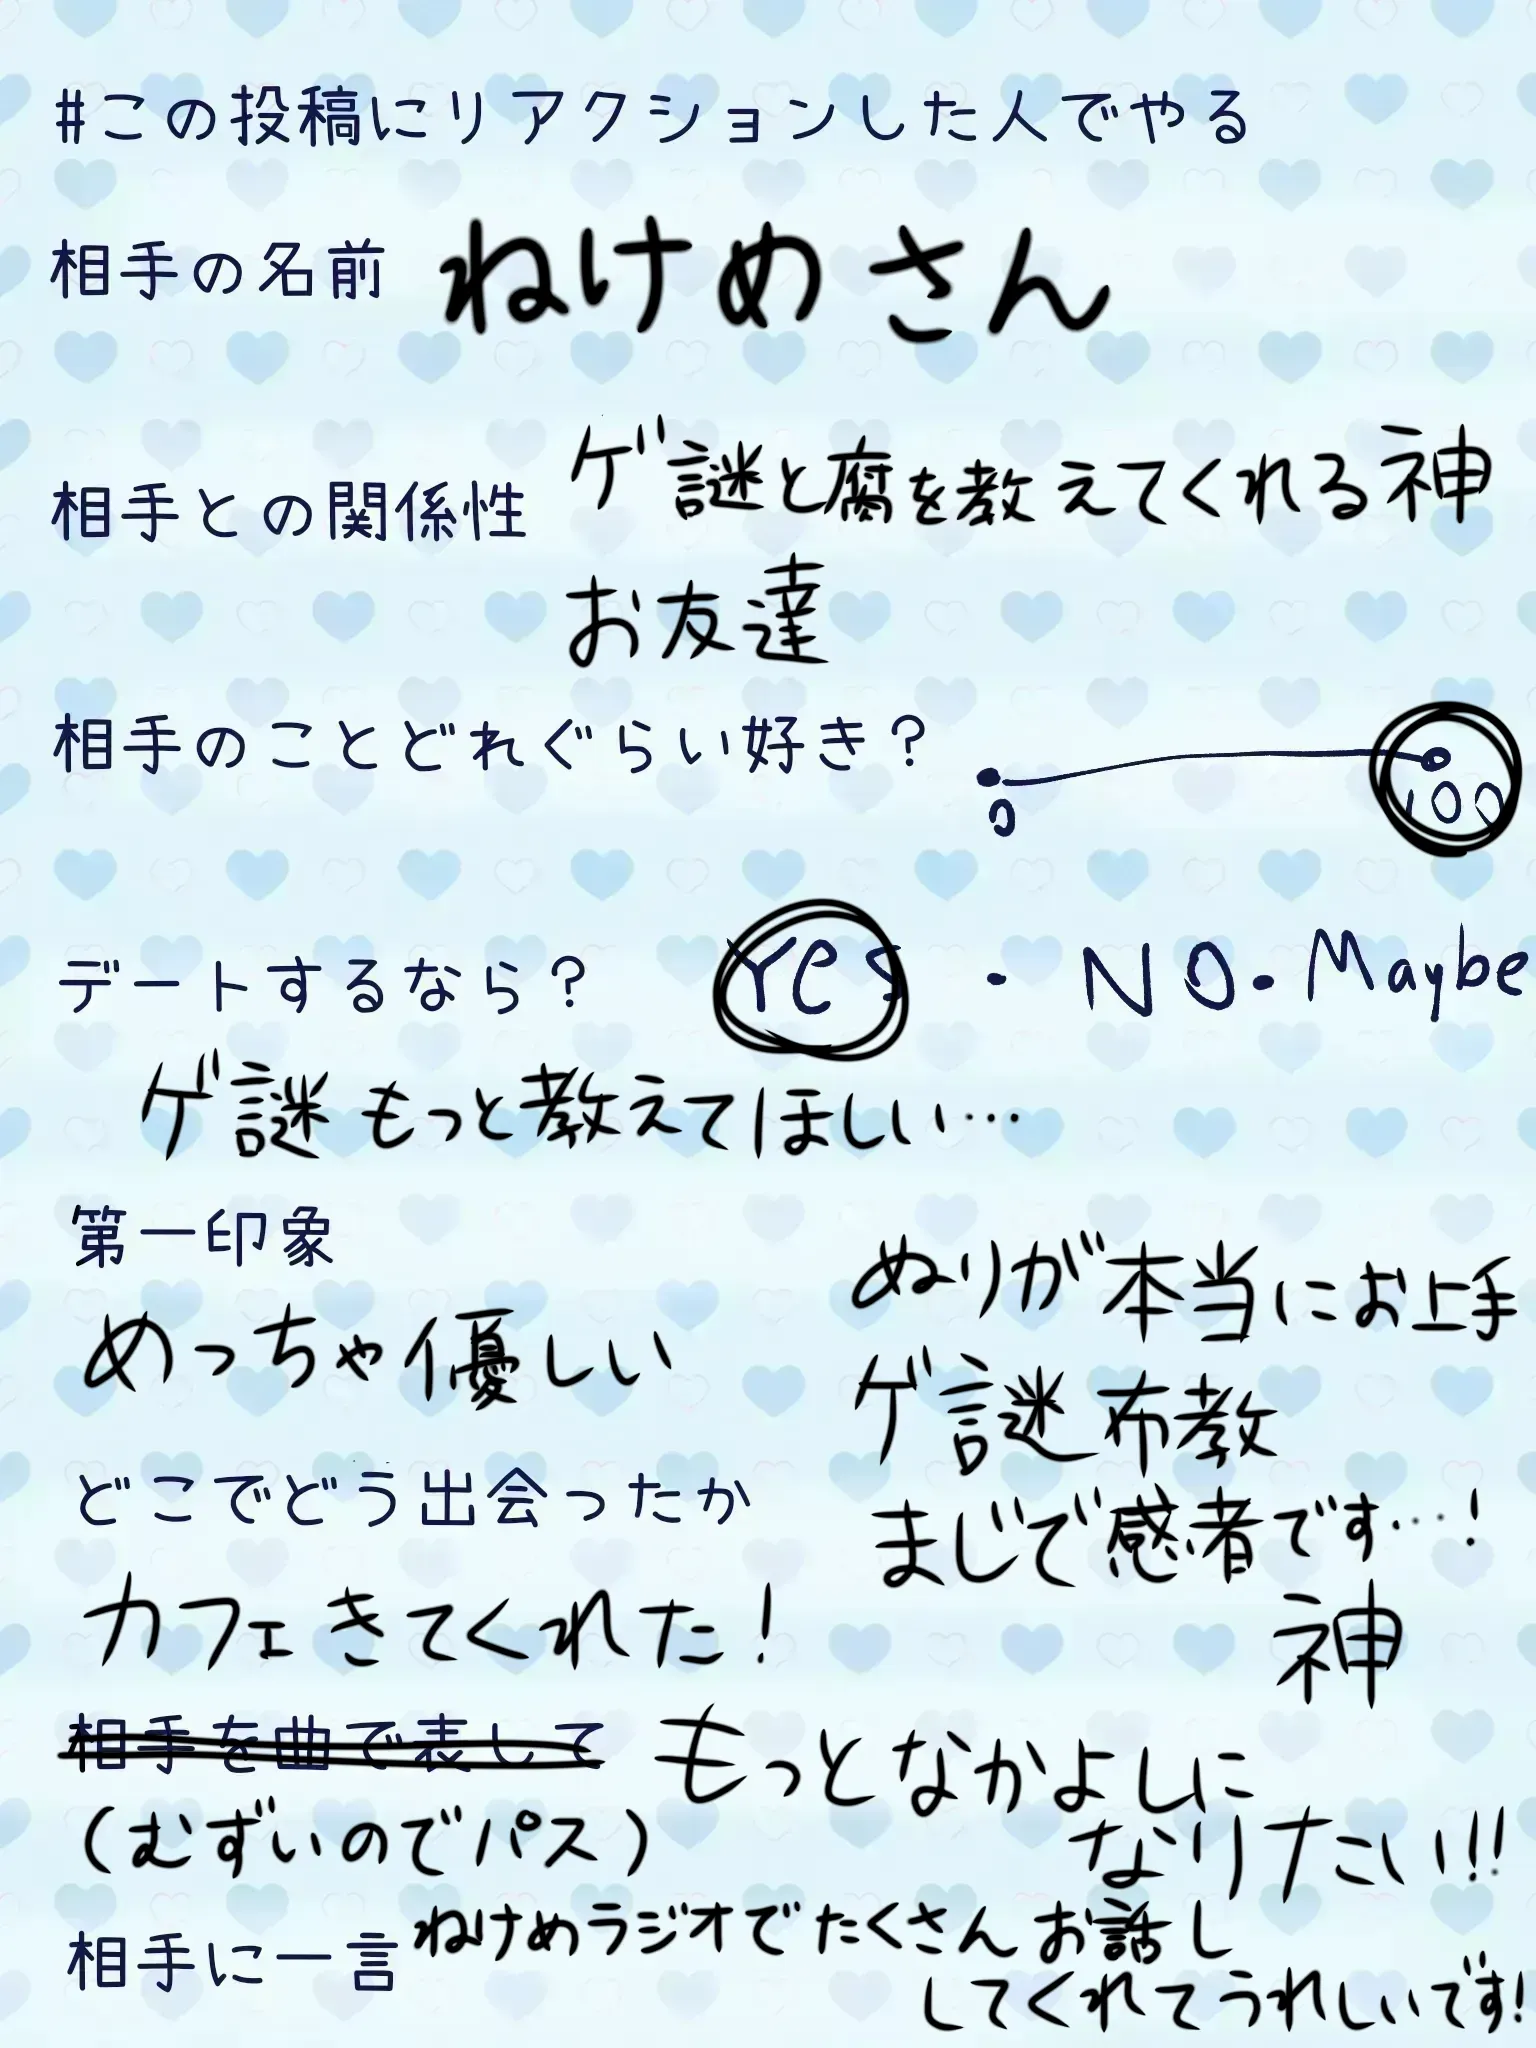 #この投稿にリアクションした人でやる
相手の名前 ねけめさん
相手との関係性 ゲ謎と腐を教えてくれる神
お友達
相手のことどれぐらい好き?
0 100
デートするなら? Yes・NO・Maybe
ゲ謎もっと教えてほしい…
第一印象
めっちゃ優しい
どこでどう出会ったか
カフェきてくれた!
ぬりが本当にお上手
ゲ謎布教
まじで感者です…!
神
相手を曲で表して
(むずいのでパス)
もっとなかよしに
なりたい!!
相手に一言 ねけめラジオでたくさんお話し
してくれてうれしいです!